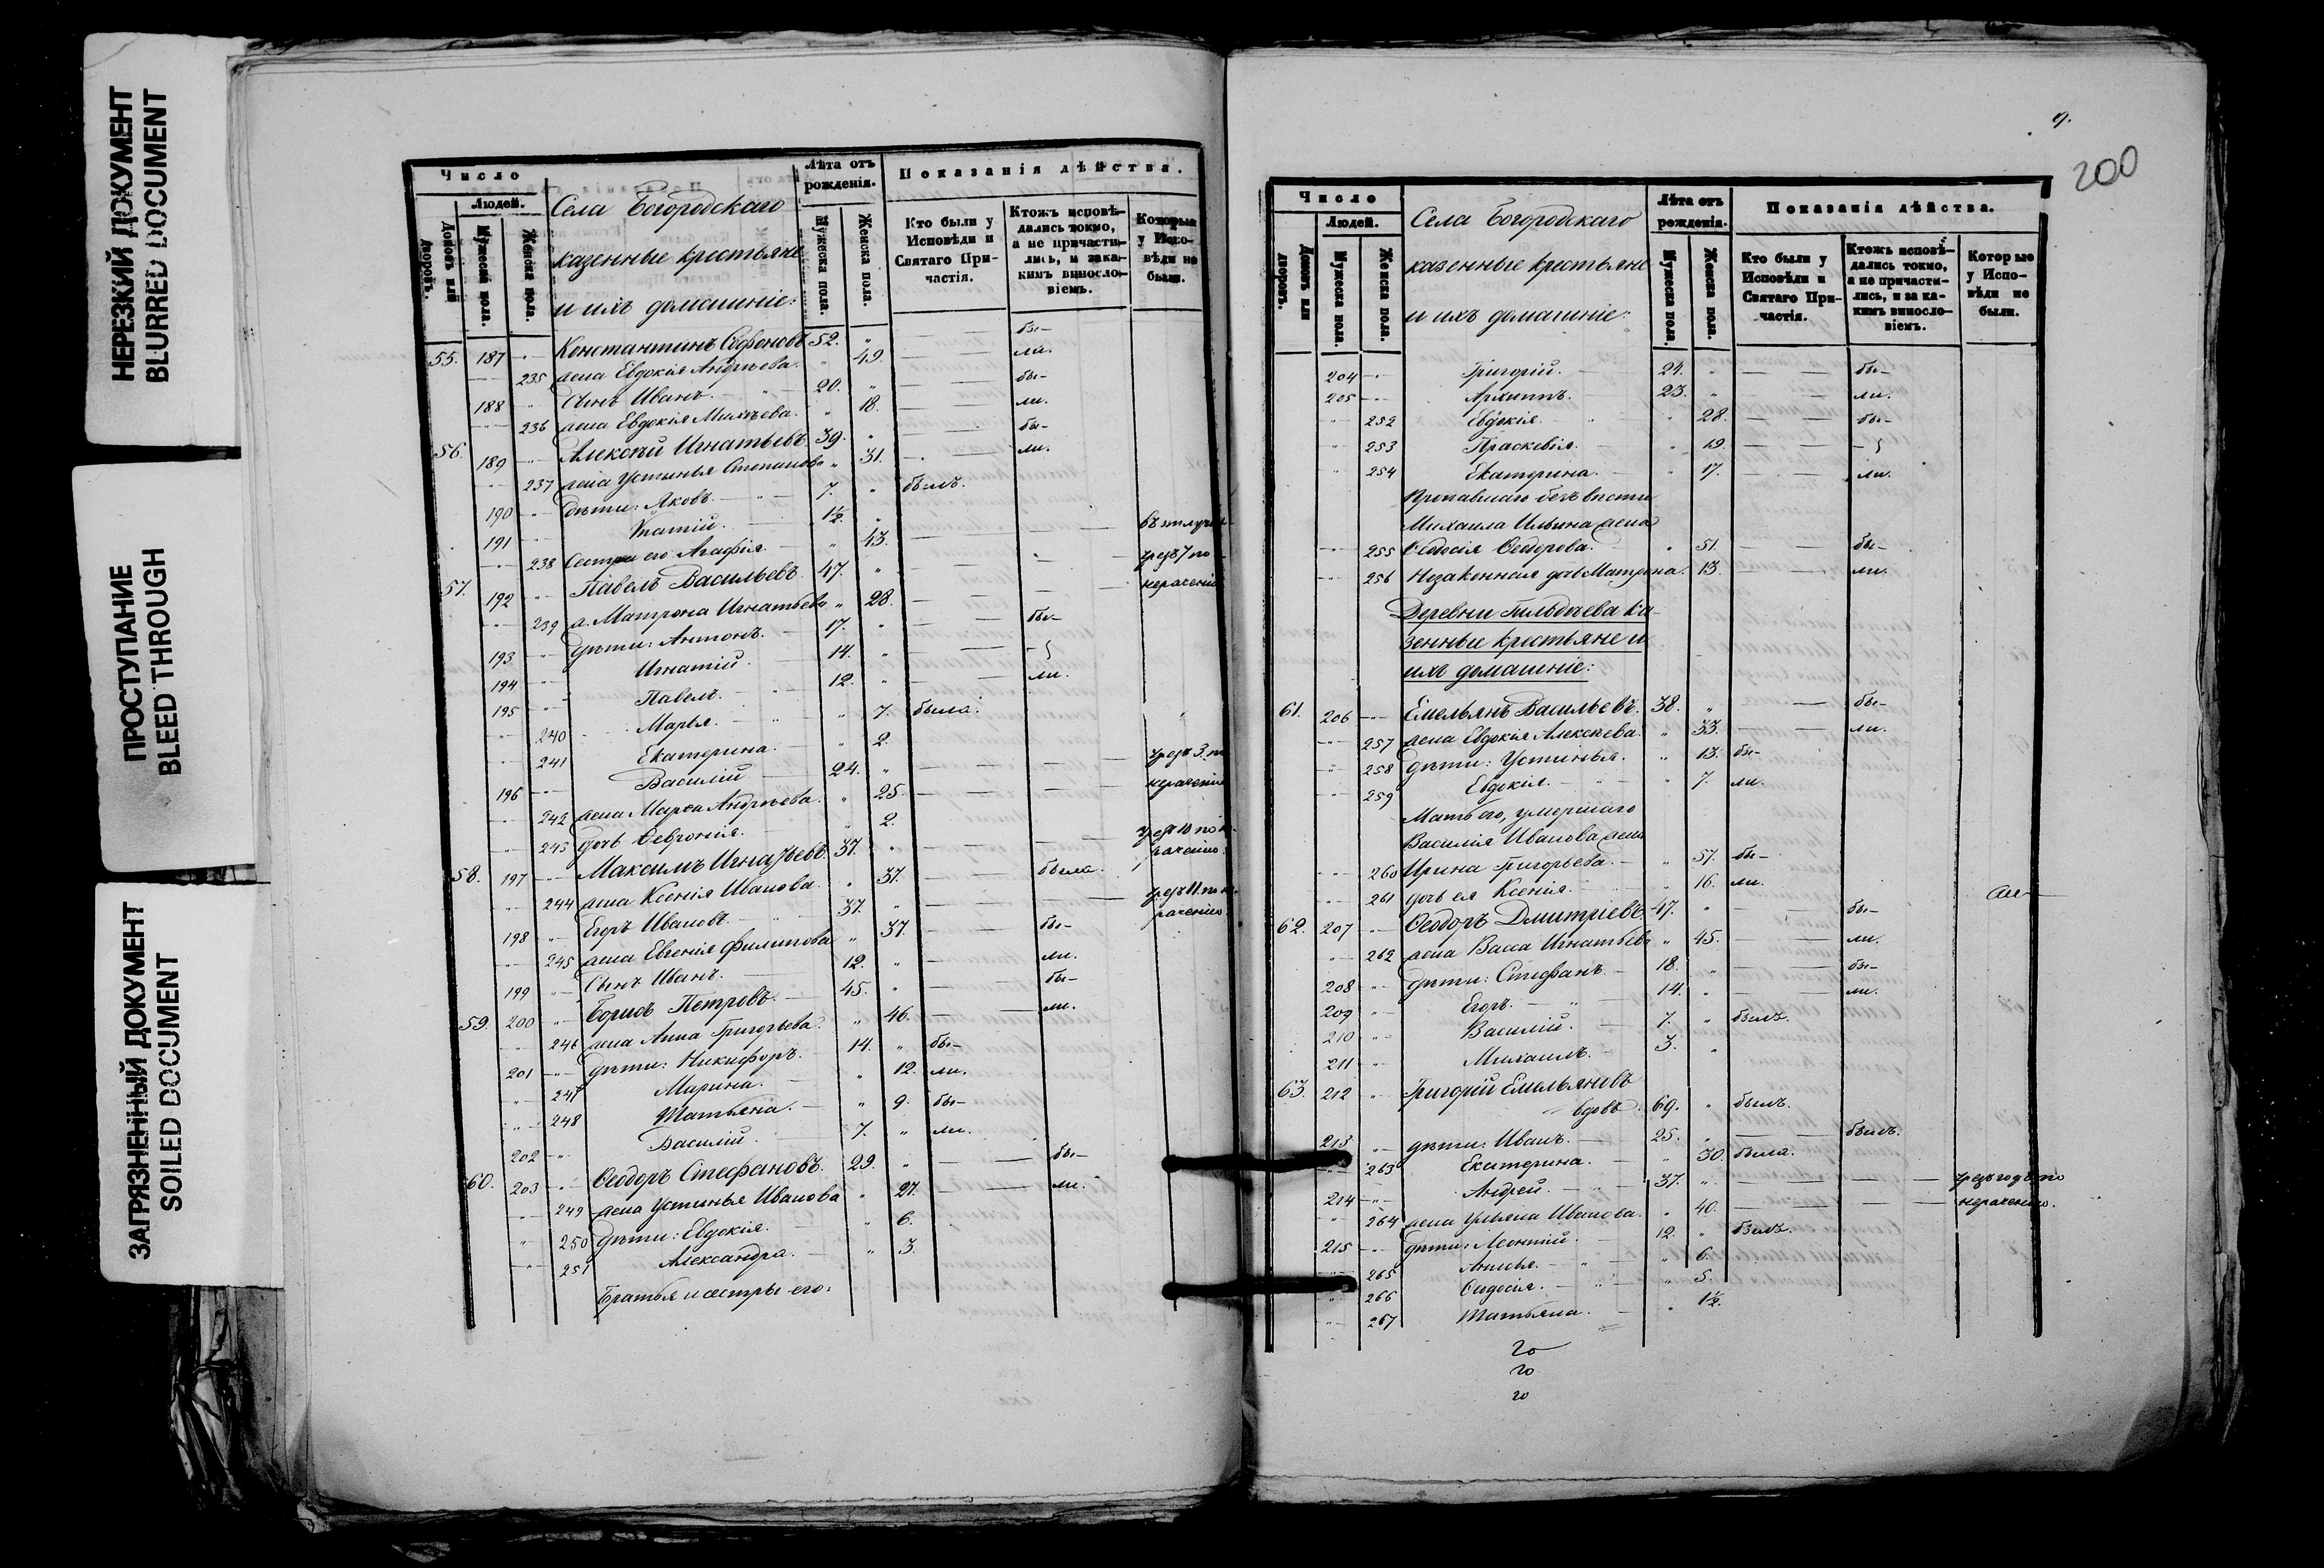 НЕРЕЗКИЙ ДОКУМЕНТ
BLURRED DOCUMENT
ПРОСТУПАНИЕ
BLEED THROUGH
ЗАГРЯЗНЕННЫЙ ДОКУМЕНТ
SOILED DOCUMENT
Число
Людей.
Домовъ или дворовъ.
Мужеска пола.
Женска пола.
Села Богородскаго
казенные крестьяне
и ихъ домашніе:
Лѣта отъ рожденія.
Мужеска пола.
Женска пола.
Показанія дѣйства.
Кто были у Исповѣди и Святаго Причастія.
Ктожъ исповѣдались токмо, а не причастились, и закакимъ винословіемъ.
Которые у Исповѣди не были.
55. 187 Константинъ Софоновъ 52. бы-
235 жена Евдокія Андреева. 49. ли.
188 Сынъ Иванъ. 20. бы-
236 жена Евдокія Михеева. 18. ли.
56. 189 Алексѣй Игнатьевъ 39. бы-
237 жена Устинья Степанова 31. ли.
190 дѣти: Яковъ. 7. былъ.
191 Ипатій. 1½.
238 Сестра его Агафія. 43.
57. 192 Павелъ Васильевъ. 47. чрезъ 7 по
239 ж. Матрона Игнатьева 28. нераченію
193 дѣти: Антонъ. 17. бы-
194 Игнатій. 14.
195 Павелъ. 12. ли.
240 Марья. 7. была.
241 Екатерина. 2.
196 Василій 24. чрезъ 3. по
242 жена Марѳа Андреева. 25. нераченію
243 дочь Февронія. 2.
58. 197 Максимъ Игнатьевъ 37. чрезъ 10 по
244 жена Ксенія Иванова. 37. была.
198 Егоръ Ивановъ 37. чрезъ 11. по
245 жена Евгенія Филипова 37. бы-
199 Сынъ Иванъ. 12. ли.
59. 200 Борисъ Петровъ. 45. бы-
246 жена Анна Григорьева. 46. ли.
201 дѣти: Никифоръ. 14. бы-
247 Марина. 12. ли.
248 Татьяна. 9. бы-
202 Василій. 7. ли.
60. 203 Ѳеодоръ Стефановъ. 29. бы-
249 жена Устинья Иванова 27. ли.
250 дѣти: Евдокія. 6.
251 Александра. 3.
Братья и сестры его:
9.
200
Число
Людей.
Домовъ или дворовъ.
Мужеска пола.
Женска пола.
Села Богородскаго
казенные крестьяне
и ихъ домашніе:
Лѣта отъ рожденія.
Мужеска пола.
Женска пола.
Показанія дѣйства.
Кто были у Исповѣди и Святаго Причастія.
Ктожъ исповѣдались токмо, а не причастились, и за какимъ винословіемъ.
Которые у Исповѣди не были.
204 Григорій. 24. бы-
205 Архиппъ. 23. ли.
252 Евдокія. 28. бы-
253 Праскевія. 19.
254 Екатерина. 17. ли.
Пропавшаго безъ вѣсти
Михаила Ильина жена
255 Ѳедосія Ѳедорова. 51. бы-
256 Незаконная дочь Матрона. 13. ли.
Деревни Гильдеева ка
зенные крестьяне и
ихъ домашніе:
61. 206 Емельянъ Васильевъ. 38. бы-
257 жена Евдокія Алексѣева. 33. ли.
258 дѣти: Устинья. 13. бы-
259 Евдокія. 7. ли.
Мать его, умершаго
Василія Иванова жена
260 Ирина Григорьева. 57. бы-
261 дочь ея Ксенія. 16. ли.
62. 207 Ѳеодоръ Дмитріевъ 47. бы-
262 жена Васса Игнатьева 45. ли.
208 дѣти: Стефанъ. 18. бы-
209 Егоръ. 14. ли.
210 Василій. 7. былъ.
211 Михаилъ. 3.
63. 212 Григорій Емельяновъ
вдовъ. 69. былъ.
213 дѣти: Иванъ. 25. былъ.
263 Екатерина. 30. была.
214 Андрей. 37. чрезъ годъ по
264 жена Ульяна Иванова. 40. нераченію.
215 дѣти: Леонтій. 12. былъ.
265 Анисья. 6.
266 Ѳедосія. 5.
267 Татьяна. 1½.
20
20
20